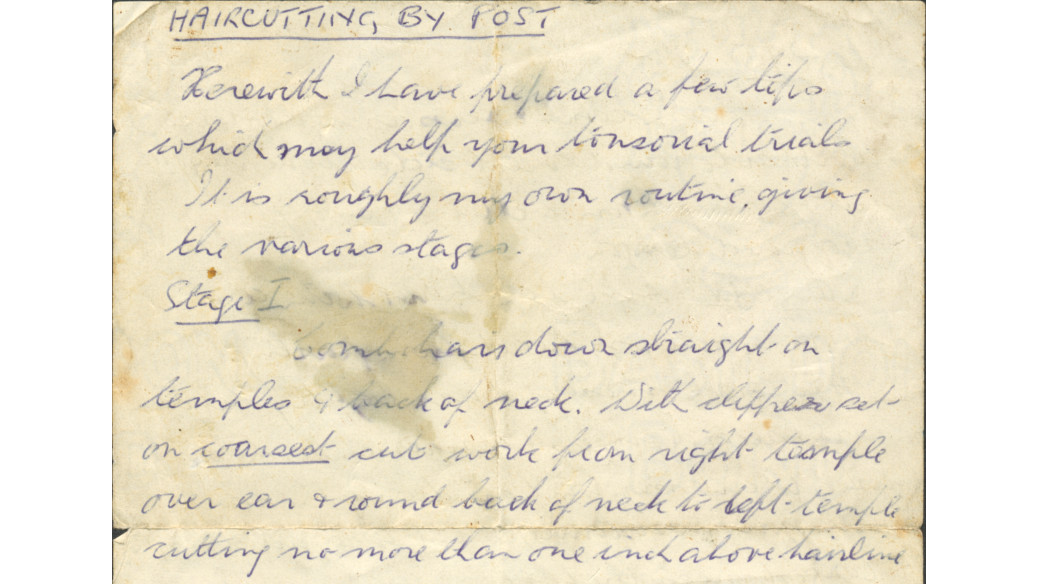 HAIRCUTTING BY POST
Herewith I have prepared a few tips
which may help your tonsorial trials
It is roughly my own routine, giving
the various stages.
Stage I
Comb hairs down straight on
temples & back of neck. With clippers set
on coarsest cut work from right temple
over ear & round back of neck to left temple
cutting no more than one inch above hairline